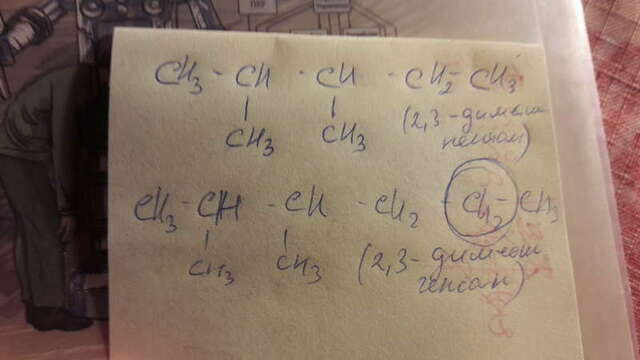 CH₃ - CH - CH - CH₂ - CH₃
CH₃ CH₃
(2,3-димет
пентан)
CH₃ - CH - CH - CH₂ - CH₂ - CH₃
CH₃ CH₃
(2,3-димет
гексан)